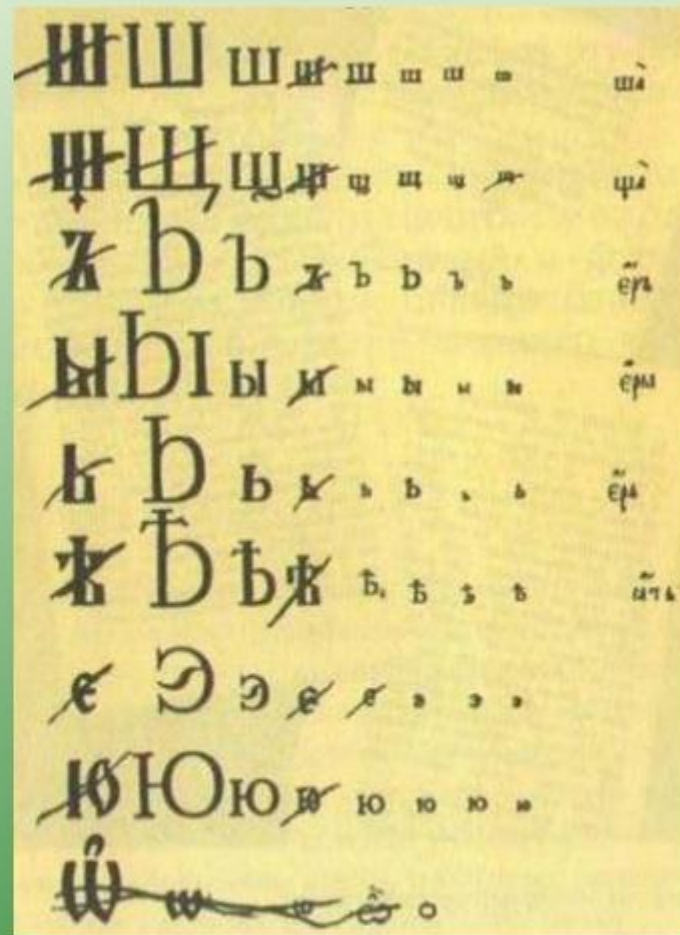 Ш Ш ш ш ш ш ш ш ша̀
Щ Щ щ щ щ щ щ щ ща̀
Ъ Ъ ъ ъ ъ ъ ъ ъ є҆́ръ
Ы Ы ы ы ы ы ы ы є҆ры̀
Ь Ь ь ь ь ь ь ь є҆́рь
Ѣ Ѣ ѣ ѣ ѣ ѣ ѣ ѣ ꙗ҆́ть
Є Э э є є э э э
Ю Ю ю ю ю ю ю ю
Ѽ ѡ ѡ о